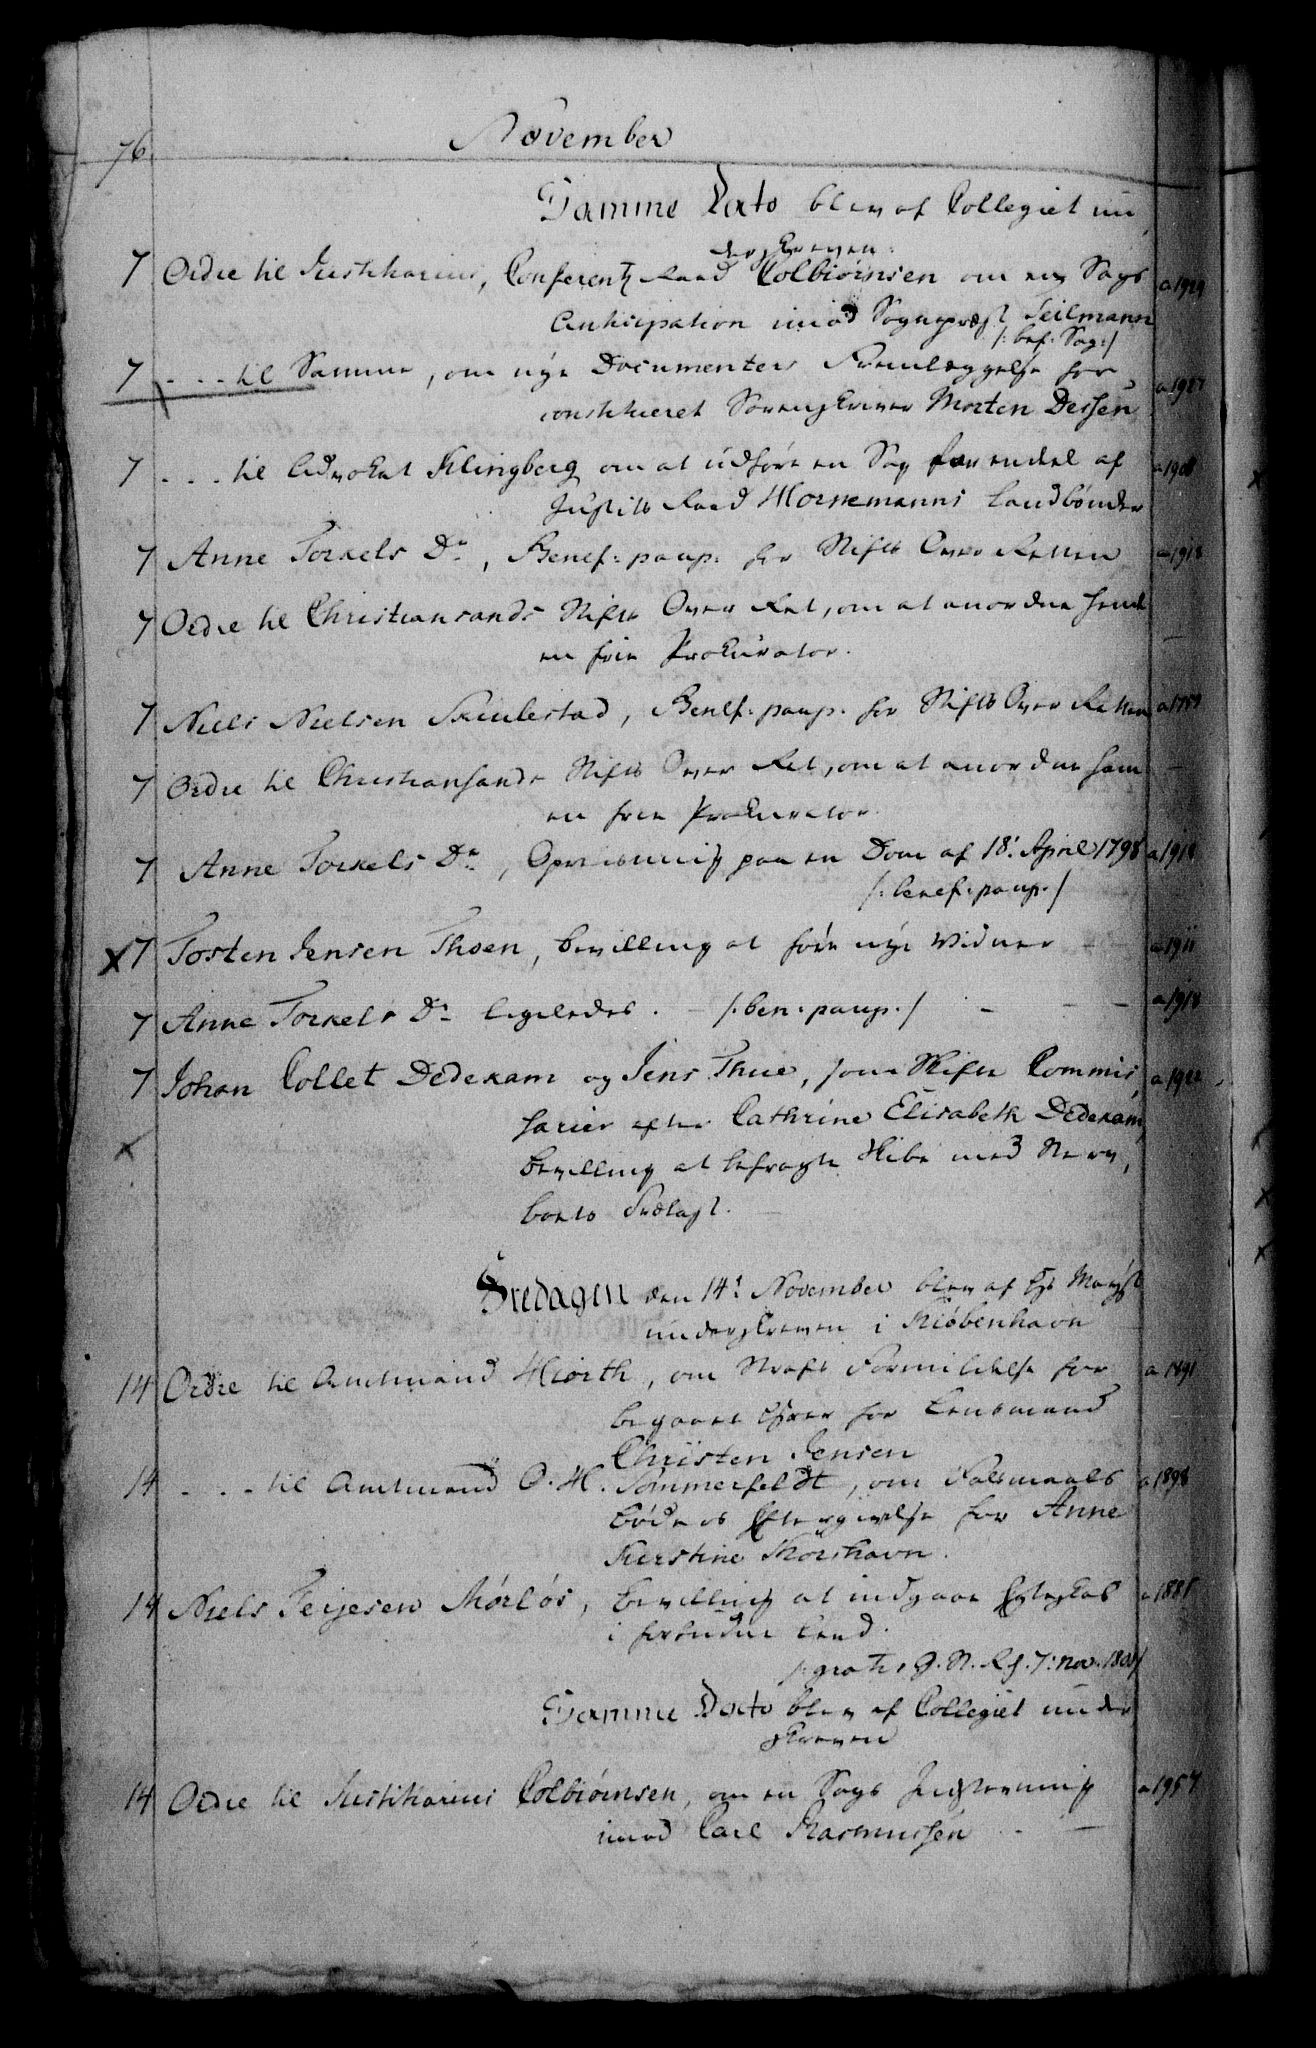 76. November
Samme Dato blev af Collegiet un
derskreven.
7 Ordre til Justitiarius, Conferentz Raad Colbiørnsen om en Sags a 1929
Anticipation imod Sognepræst Teilmann
/: bef: Sag :/
7 - - - til Samme, om nye Documenters Fremlæggelse for a 1927
constitueret Sorenskriver Morten Dessen
7 - - - til Advokat Klingberg om at udføre en Sag for endel af a 1908
Justits Raad Hornemanns Landbønder
7 Anne Torkels Dr, Benef: paup: for Stifts Over Retten a 1918
7 Ordre til Christiansands Stifts Over Ret, om at anordne hende —
en frie Prokurator.
7 Niels Nielsen Skulestad, Benef: paup: for Stifts Over Retten a 1759
7 Ordre til Christiansands Stifts Over Ret, om at anordne ham —
en frie Prokurator.
7 Anne Torkels Dr, Opreisning paa en Dom af 18: April 1798 a 1918
/: benef: paup: /
x 7 Tosten Jensen Thoen, bevilling at føre nye Vidner a 1911
7 Anne Torkels Dr ligeledes. — /: ben: paup: / — — — a 1918
7 Johan Collet Dedekam og Jens Thue, som Skifte Commis, a 1922
sarier efter Cathrine Elisabeth Dedekam,
bevilling at befragte Skibe med
x
Fredagen den 14: November blev af Hs Mayst
underskreven i Kiøbenhavn
14 Ordre til Amtmand Hiorth, om Straffs Formildelse for a 1891
begaaet for Lensmand
Christen Jensen
14 - - - til Amtmand O. H. Sommerfeldt, om Faldsmaals a 1898
bøders Eftergivelse for Anne
Kierstine Thorshavn.
14 Niels Terjesen Mørløs, bevilling at indgaae Egteskab a 1885
i forbuden Leed.
/: gratis g. N. Rs. 7: nov. 1801 /
Samme Dato blev af Collegiet under
skreven
14 Ordre til Justitiarius Colbiørnsen, om en Sags Indstevning a 1957
imod Carl Rasmussen — —